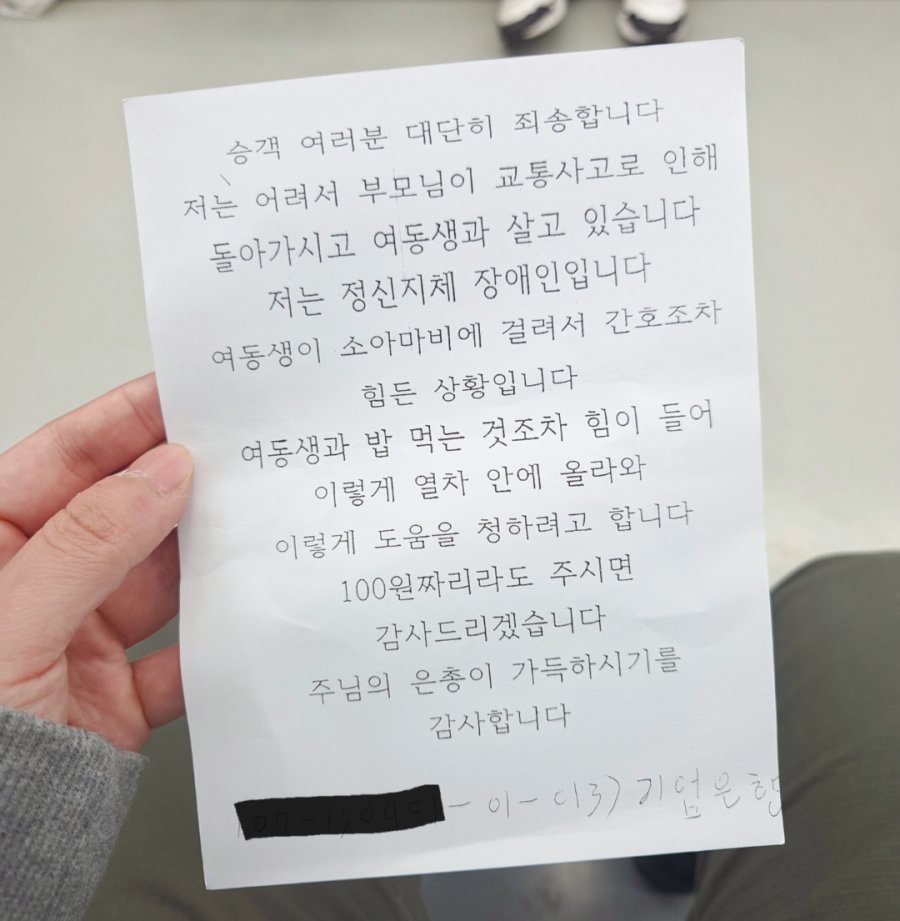 승객 여러분 대단히 죄송합니다
저는 어려서 부모님이 교통사고로 인해
돌아가시고 여동생과 살고 있습니다
저는 정신지체 장애인입니다
여동생이 소아마비에 걸려서 간호조차
힘든 상황입니다
여동생과 밥 먹는 것조차 힘이 들어
이렇게 열차 안에 올라와
이렇게 도움을 청하려고 합니다
100원짜리라도 주시면
감사드리겠습니다
주님의 은총이 가득하시기를
감사합니다
-01-(13) 기업은행